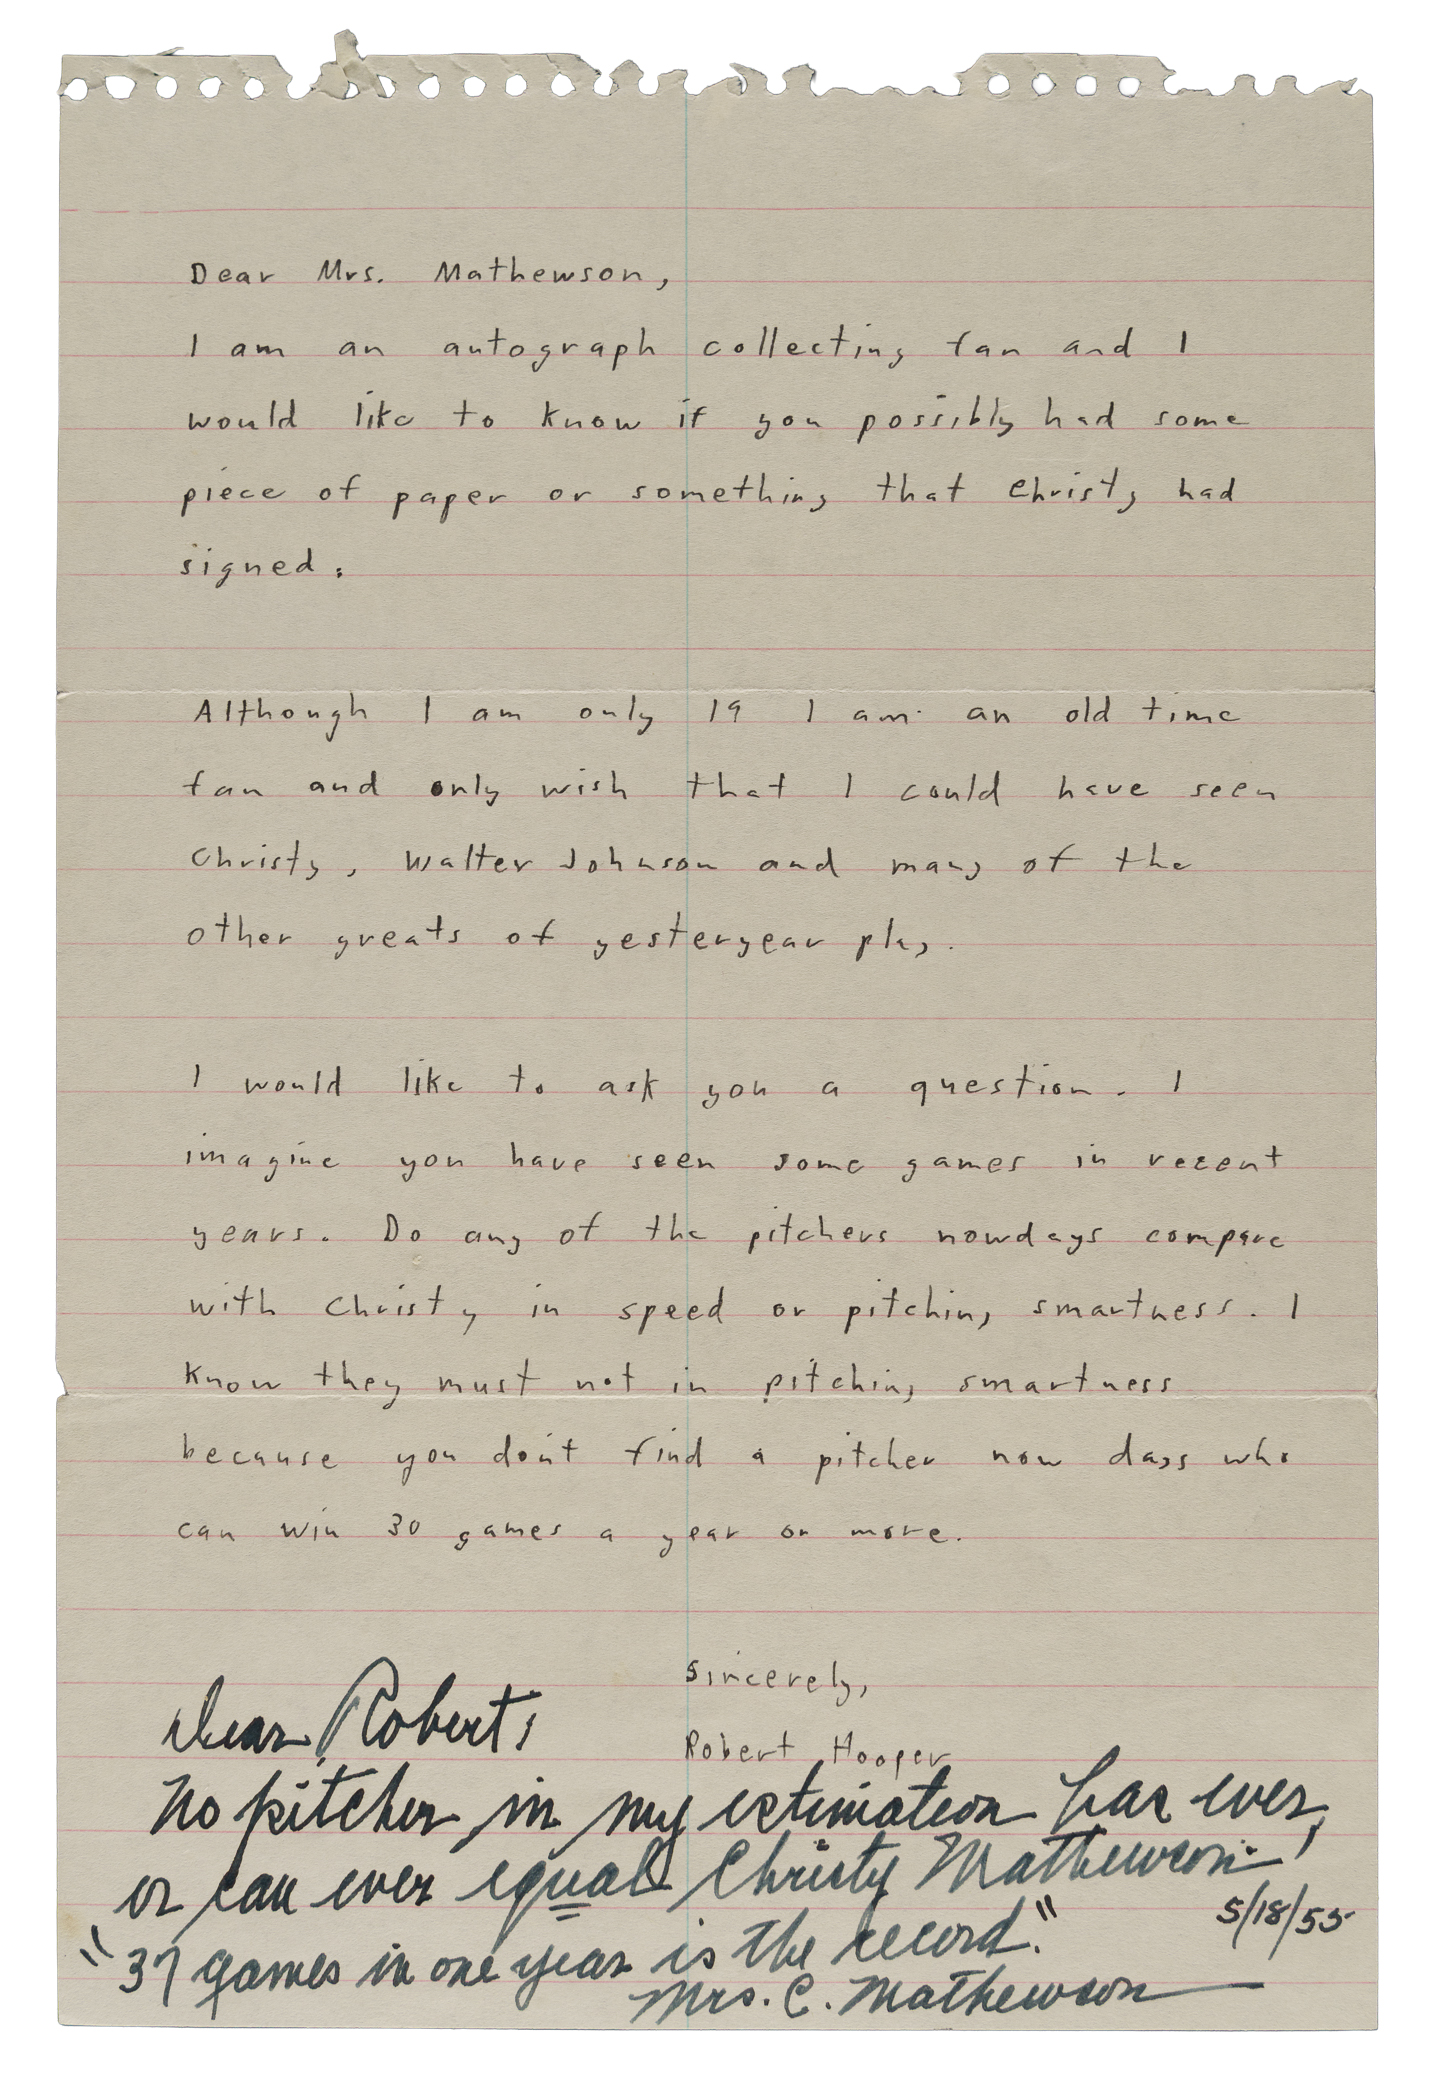 Dear Mrs. Mathewson,
I am an autograph collecting fan and I
would like to know if you possibly had some
piece of paper or something that Christy had
signed.
Although I am only 19 I am an old time
fan and only wish that I could have seen
Christy, Walter Johnson and many of the
other greats of yesteryear play.
I would like to ask you a question. I
imagine you have seen some games in recent
years. Do any of the pitchers nowdays compare
with Christy in speed or pitching smartness. I
know they must not in pitching smartness
because you don't find a pitcher now days who
can win 30 games a year or more.
Sincerely,
Robert Hooper
Dear Robert;
No pitcher in my estimation has ever,
or can ever equal Christy Mathewson!
5/18/55
"37 games in one year is the record."
Mrs. C. Mathewson